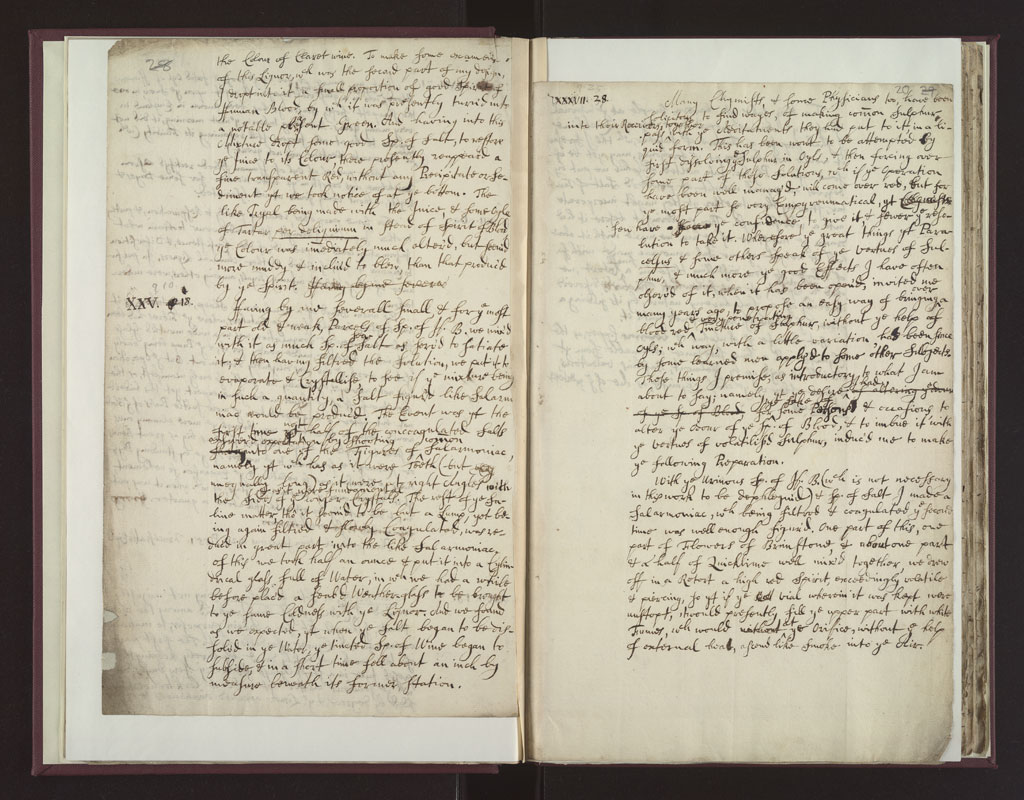 28
the Colour of Claret wine. To make some
of this Liquor, wch was the second part of my design,
I dropt into it a small proportion of good Spirit of
Human Blood, by wch it was presently turn'd into
a notable Green. And having into this
Mixture dropt some good Sp. of Salt, to restore
ye Juice to its Colour, there presently
fine transparent Red, without any Precipitate or Se-
diment yt we took notice of at ye bottom. The
like Tryal being made with the Juice, & some Oyle
of Tartar per deliquium in stead of Spirit of Blood
ye Colour was immediately much alterd, but
more muddy & inclin'd to blew, than that produc'd
by ye Spirit.
XXV. 18.
Having by severall small & for ye most
part old & weak Parcels of Sp. of H. B. we mix'd
with it as much Sp. of Salt as serv'd to satiate
it; & then having filtred the Solution, we put it to
evaporate & Crystallise, to see if ye mixture being
in such a quantity, a Salt figur'd like Salarm
niac would be produc'd. The Event was yt the
first time half of the concoagulated Salts
by Shooting
into one of the figures of Salarmoniac,
namely yt wch has as it were Teeth (but
unequally long) as it were to right Angles with
the sides of The rest of ye Sa-
line matter tho it seem'd to be but a Lump, yet be-
ing again filtred & slowly Coagulated, was re-
duc'd in great part into the like Salarmoniac.
Of this we took half an ounce & put it into a Cylin-
drical glass full of Water, in wch we had a while
before plac'd a Seal'd Weatherglass to be brought
to ye same Coldness with ye Liquor. And we found
as we expected, yt when ye Salt began to be dis-
solved in ye Water, ye tincted Sp. of Wine began to
subside, & in a short time fell about an inch by
measure beneath its former station.
XXXVII. 28.
Many Chymists, & some Physicians too, have been
sollicitous to find wayes, of making common Sulphur,
into their Receivers, together
pass with ye Additaments they had put to it, in a li-
quid form. This has been wont to be attempted by
first dissolving Sulphur in Oyls, & then forcing over
some part of these Solutions, wch if ye Operation
have been well manag'd, will come over red, but for
ye most part so very Empyreumatical, yt
sen have confidence to give it & fewer ye reso-
lution to take it. Wherefore ye great things yt Para-
celsus & some others speak of ye vertues of Sul-
phur, & much more ye good Effects I have often
observ'd of it, when it has been open'd, invited me
many years ago, to propose an easy way of bringing over
blood red Tincture of Sulphur, without ye help of
Oyls, wch way, with a little variation has been since
by some learned men apply'd to some other Subjects.
These things I premise, as introductory to what I am
about to say; namely
some Persons & occasions to
alter ye Odour of ye Sp. of Blood, & to imbue it with
ye vertues of volatiliz'd Sulphur, induc'd me to make
ye following Preparation.
With ye Urinous Sp. of H. B (wch is not necessary
in this work to be dephlegm'd) & Sp. of Salt I made a
Salarmoniac, wch being filtred & coagulated ye second
time was well enough figur'd. One part of this, one
part of Flowers of Brimstone, & about one part
& a half of Quicklime well mix'd together, we drew
off in a Retort a high red Spirit, exceedingly volatile
& piercing, so yt if ye vial wherein it was kept were
unstopt, it would presently fill ye upper part with white
Fumes, wch would at ye Orifice, without ye help
of external heat, ascend like smoke into ye Air.